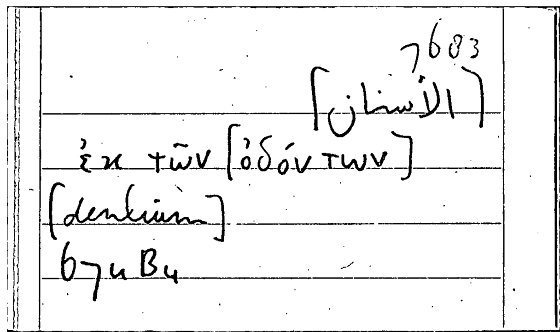 7683
[الأسنان]
ἐκ τῶν [ὀδόντων]
[dentium]